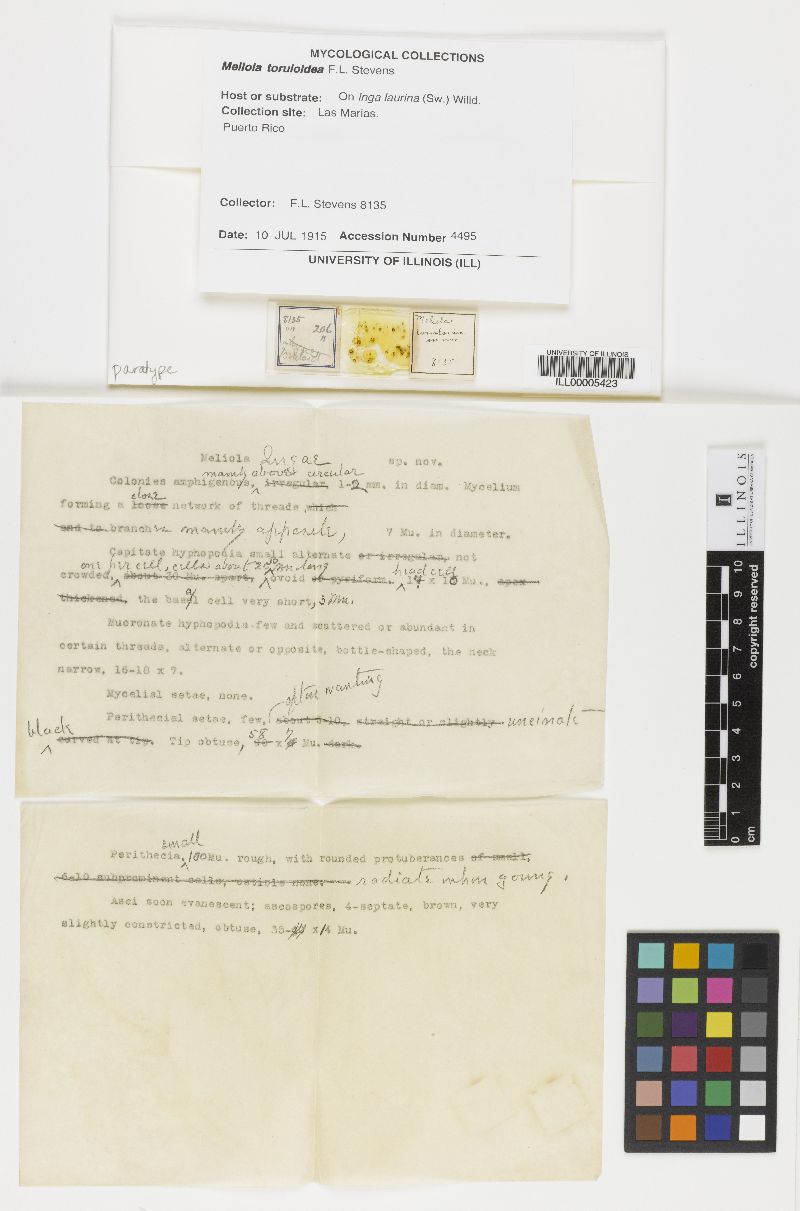 MYCOLOGICAL COLLECTIONS
Meliola toruloidea F.L. Stevens
Host or substrate: On Inga laurina (Sw.) Willd.
Collection site: Las Marias.
Puerto Rico
Collector: F.L. Stevens 8135
Date: 10 JUL 1915 Accession Number 4495
UNIVERSITY OF ILLINOIS (ILL)
8135
206
Meliola
8135
paratype
UNIVERSITY OF ILLINOIS
ILL00005423
Meliola Ingae sp. nov.
mainly above circular
Colonies amphigenous, irregular, 1-2 mm. in diam. Mycelium
close
forming a loose network of threads, which
and to branches mainly opposite, 7 Mu. in diameter.
Capitate hyphopodia small alternate or irregular, not
one per cell, cells about 20 Mu long head cell
crowded, about 30 Mu. apart, ovoid or pyriform, 14 x 10 Mu., apex
thickened, the basal cell very short, 3 Mu.
Mucronate hyphopodia few and scattered or abundant in
certain threads, alternate or opposite, bottle-shaped, the neck
narrow, 16-18 x 7.
Mycelial setae, none.
often wanting
Perithecial setae, few, about 6-10, straight or slightly uncinate
black
curved at tip. Tip obtuse, 58 x 7 Mu. dark.
small
Perithecia, 100 Mu. rough, with rounded protuberances of small,
6-10 subprominent cells, ostiole none. radiate when young.
Asci soon evanescent; ascospores, 4-septate, brown, very
slightly constricted, obtuse, 35- x 14 Mu.
ILLINOIS
copyright reserved
10
9
8
7
6
5
4
3
2
1
0
cm